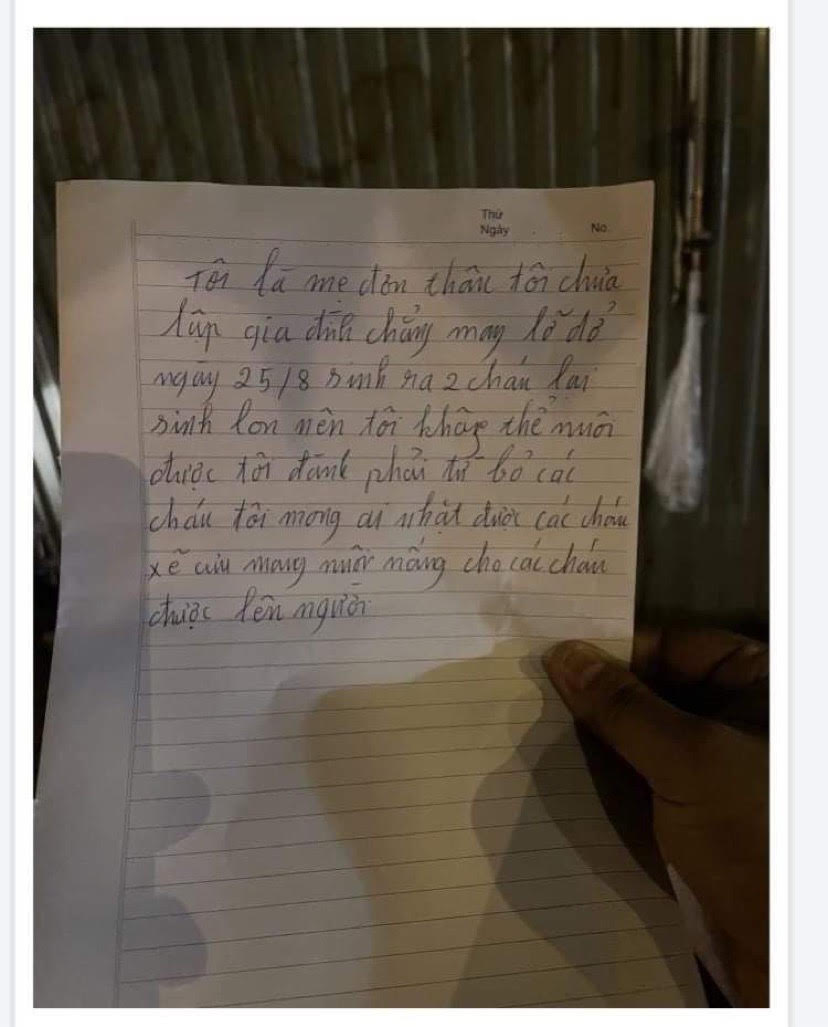 Thứ
Ngày
No.
Tôi là mẹ đơn thân tôi chưa
lập gia đình chẳng may lỡ dở
ngày 25/8 sinh ra 2 cháu lại
sinh lon nên tôi không thể nuôi
được tôi đành phải từ bỏ các
cháu tôi mong ai nhặt được các cháu
xẽ cưu mang nuôi nấng cho các cháu
được lên người